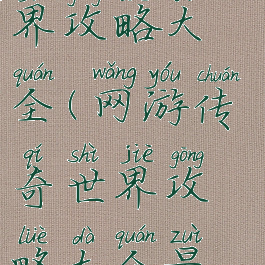 界攻略大
quán wǎng yóu chuán
全(网游传
qí shì jiè gōng
奇世界攻
lüè dà quán zuì
略大全最